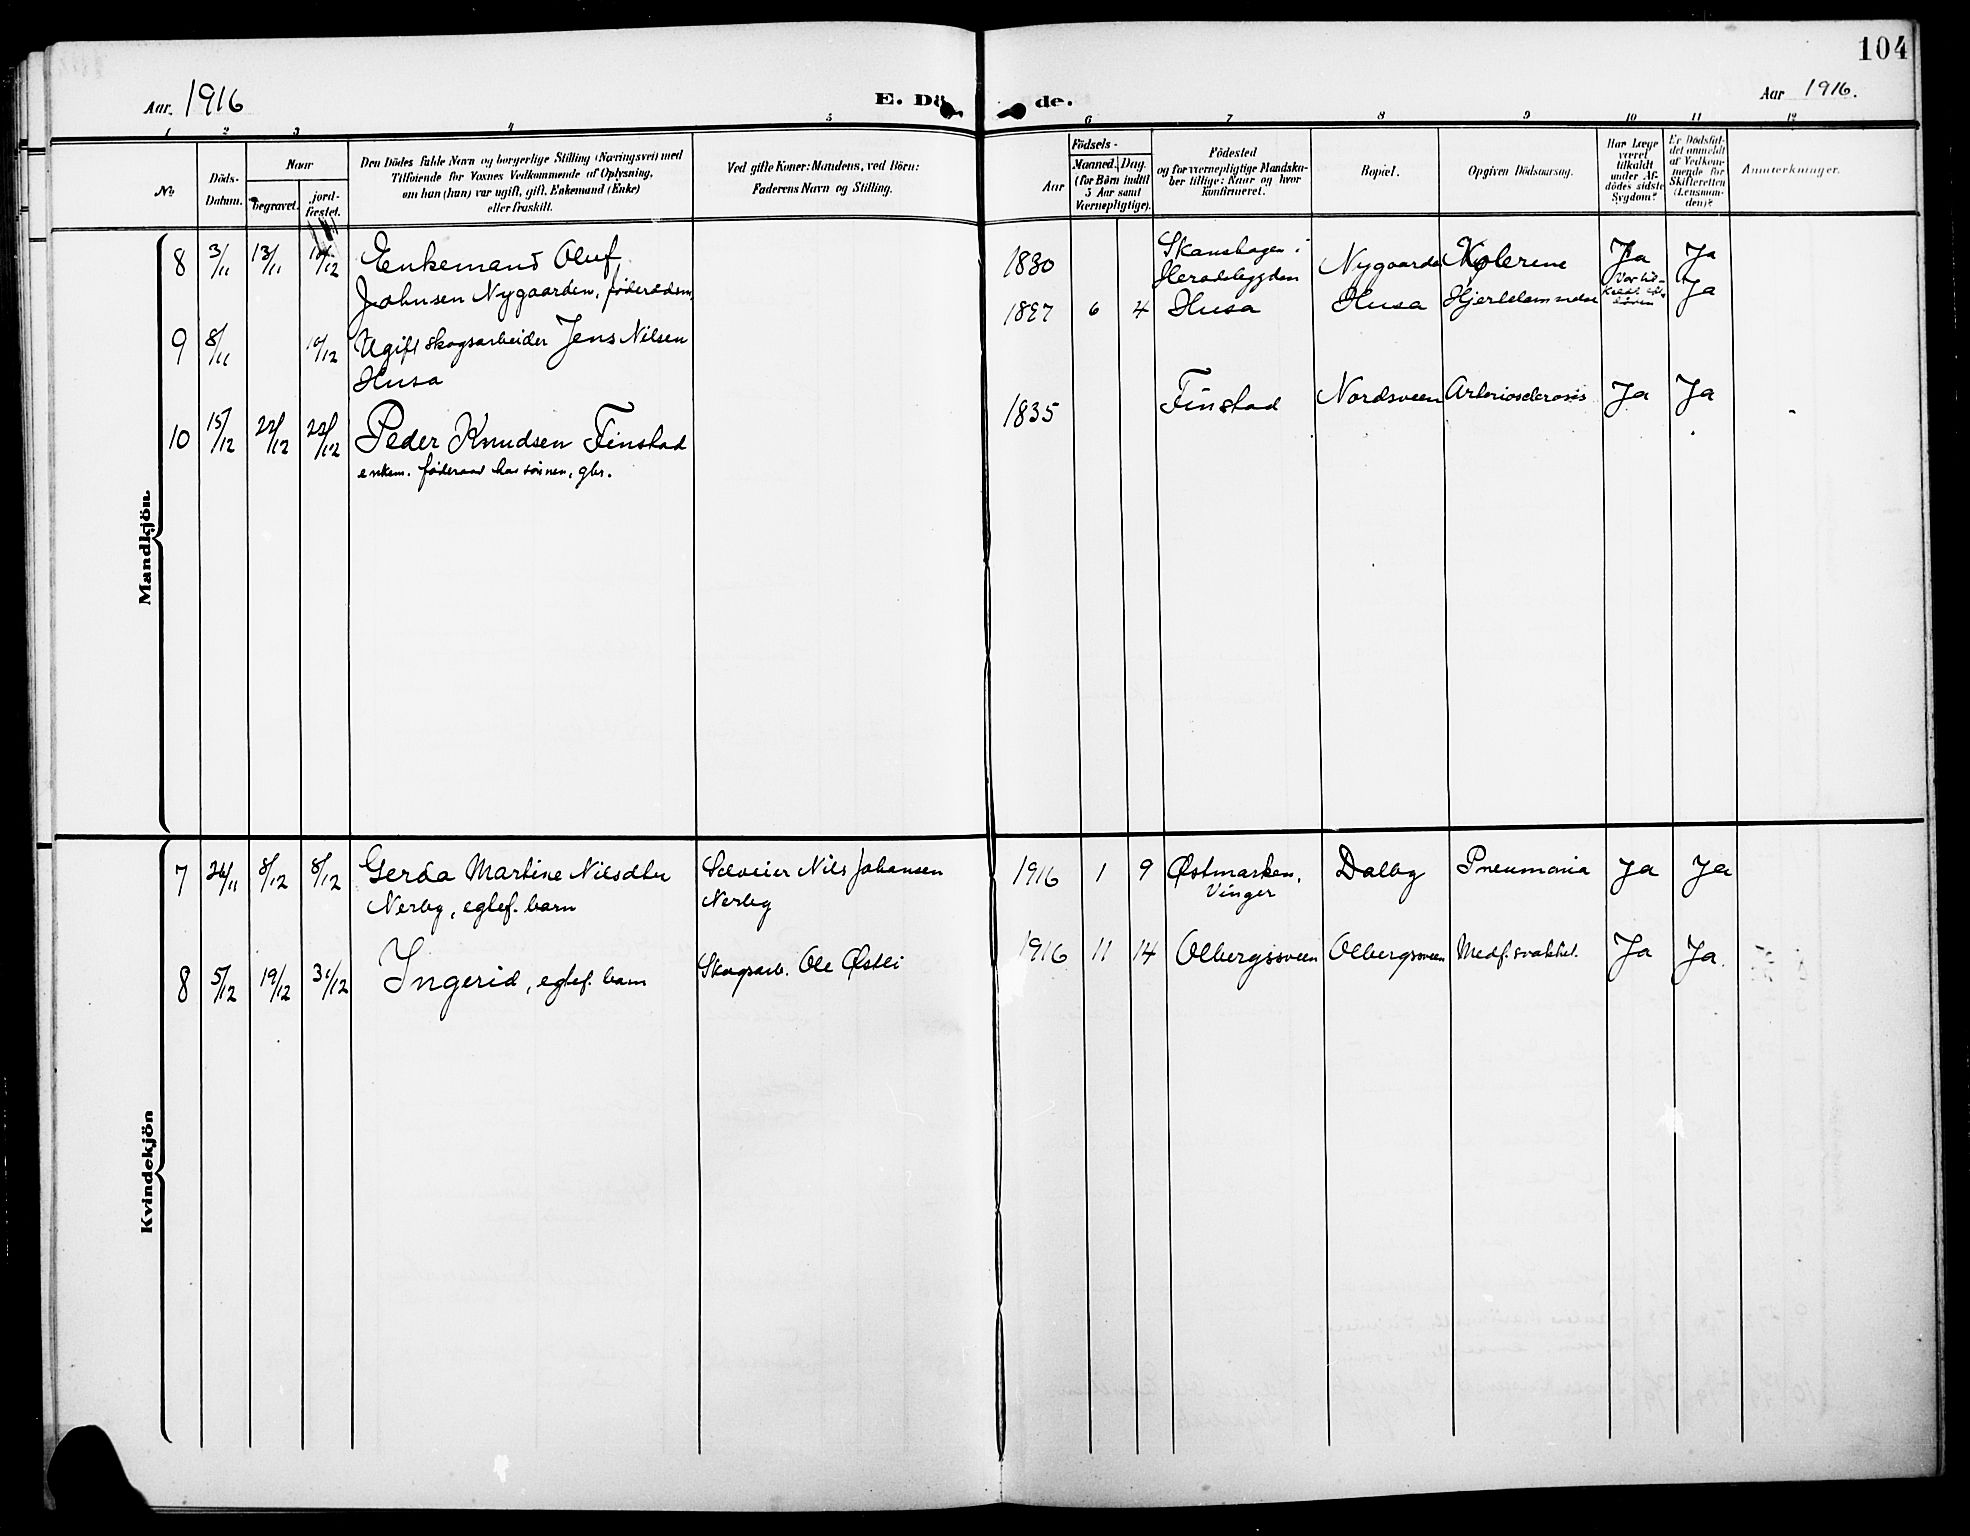 104
Aar. 1916
E. Dö
de.
Aar 1916.
1 2 3 4 5 6 7 8 9 10 11 12
No
Döds-
Datum.
Naar
begravet.
jord-
fæstet.
Den Dödes fulde Navn og borgerlige Stilling (Næringsvei) med
Tilföiende for Voxnes Vedkommende af Oplysning,
om han (hun) var ugift, gift, Enkemand (Enke)
eller fraskilt.
Ved gifte Koner: Mandens, ved Börn:
Faderens Navn og Stilling.
Aar
Födsels-
Maaned. Dag.
(for Börn indtil
5 Aar samt
Værnepligtige).
Födested
og for værnepligtige Mandska-
ber tillige: Naar og hvor
konfirmeret.
Bopæl.
Opgiven Dödsaarsag.
Har Læge
været
tilkaldt
under Af-
dödes sidste
Sygdom?
Er Dödsfal-
det anmeldt
af Vedkom-
mende for
Skifteretten
(Lensman-
den)?
Anmærkninger.
Mandkjön
8 3/11 13/11 Enkemand Oluf
Johnsen Nygaarden, föderaadsm.
1830 Skanshagen i
Heradsbygden Nygaarden Ja Ja
9 8/11 10/12 Ugift skogsarbeider Jens Nilsen
Husa
1897 6 4 Husa Husa Ja
10 15/12 22/12 22/12 Peder Knudsen Finstad
enkem. föderaad hos sönnen, gbr.
1835 Finstad Nordsveen Arteriosclerosis Ja Ja
Kvindekjön
7 26/11 8/12 8/12 Gerda Martine Nilsdtr
Nerby, egtef. barn
Selveier Nils Johansen
Nerby
1916 1 9 Østmarken,
Vinger Dalby Pneumonia Ja Ja
8 5/12 19/12 31/12 Ingerid, egtef. barn
Skogsarb. Ole Østli
1916 11 14 Olbergsveen Olbergsveen Medf. svakhet. Ja Ja.